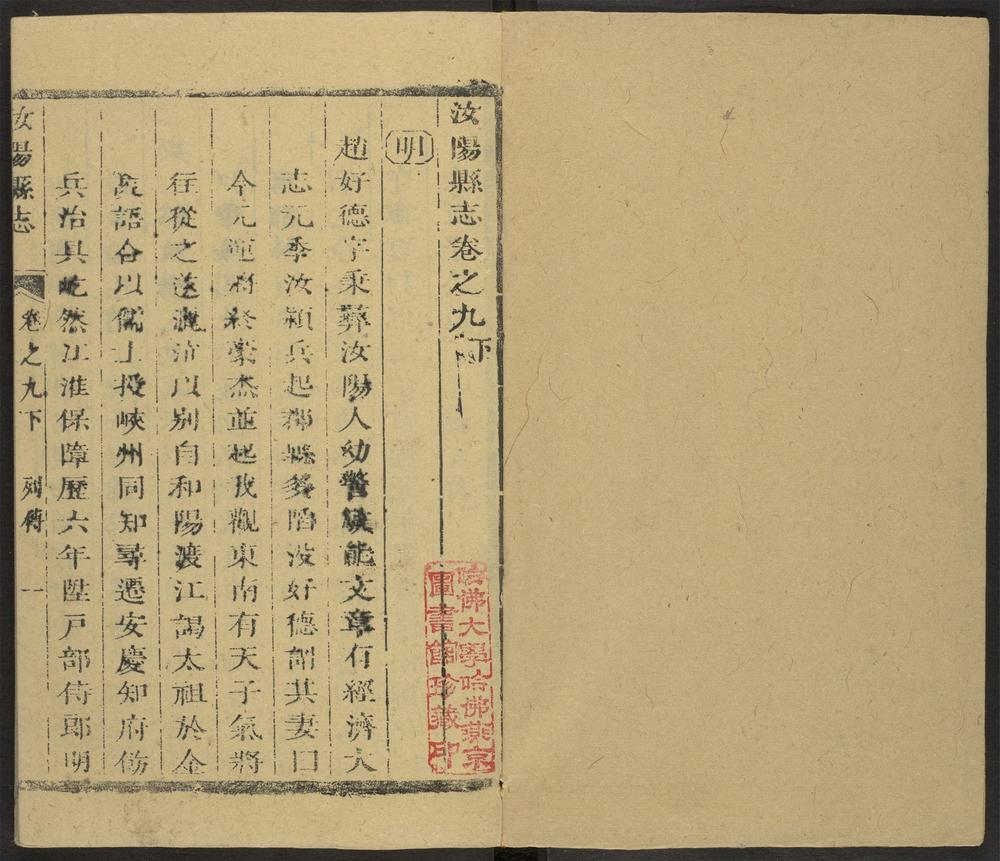 汝陽縣志卷之九下
明
趙好德字秉彝汝陽人幼警敏能文章有經濟大
志元季汝潁兵起郡縣多陷沒好德謂其妻曰
今元運將終豪杰並起我觀東南有天子氣將
往從之遂灑涕以別自和陽渡江謁太祖於金
陵語合以儒士授峽州同知尋遷安慶知府倣
兵治具屹然江淮保障歷六年陞戶部侍郎明
汝陽縣志
卷之九下
列傳
一
哈佛大學哈佛燕京
圖書館珍藏印